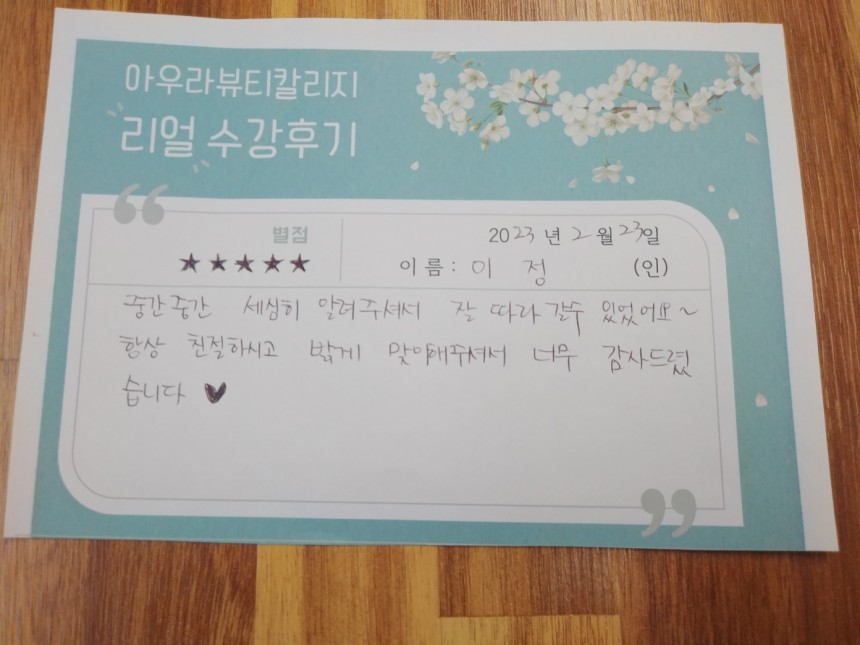 아우라뷰티칼리지
리얼 수강후기
별점
★★★★★
2023 년 2 월 23일
이름 : 이 정 (인)
중간중간 세심히 알려주셔서 잘 따라갈수 있었어요~
항상 친절하시고 밝게 맞이해주셔서 너무 감사드렸
습니다 ♥